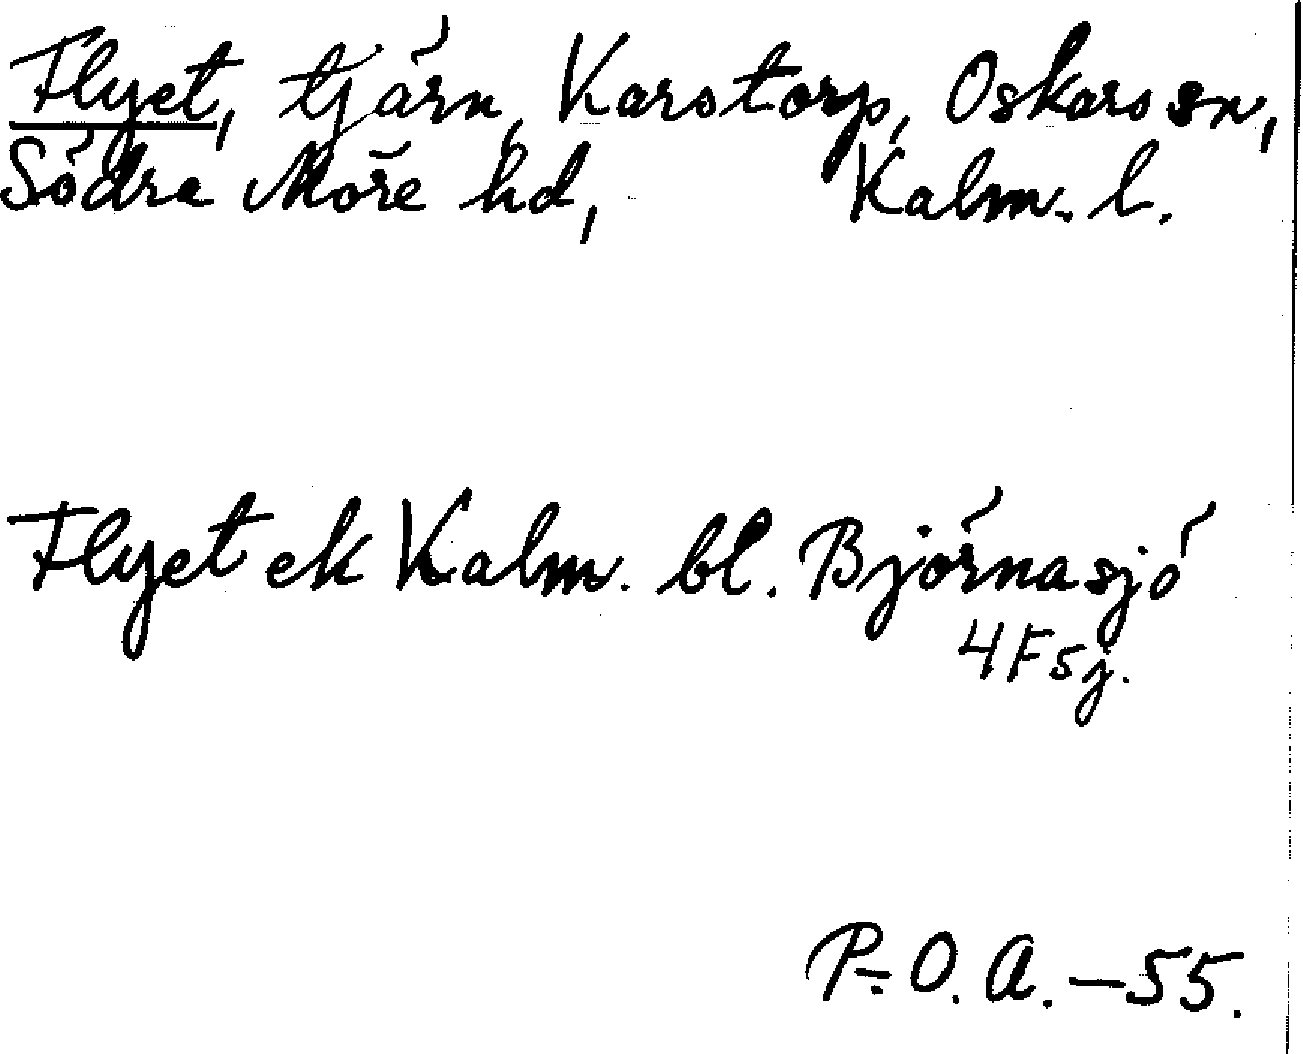 Flyet, tjärn, Karstorp, Oskars sn,
Södra Möre hd, Kalm. l.
Flyet ek Kalm. bl. Björnasjö
4 F sj.
P.-O. A. - 55.